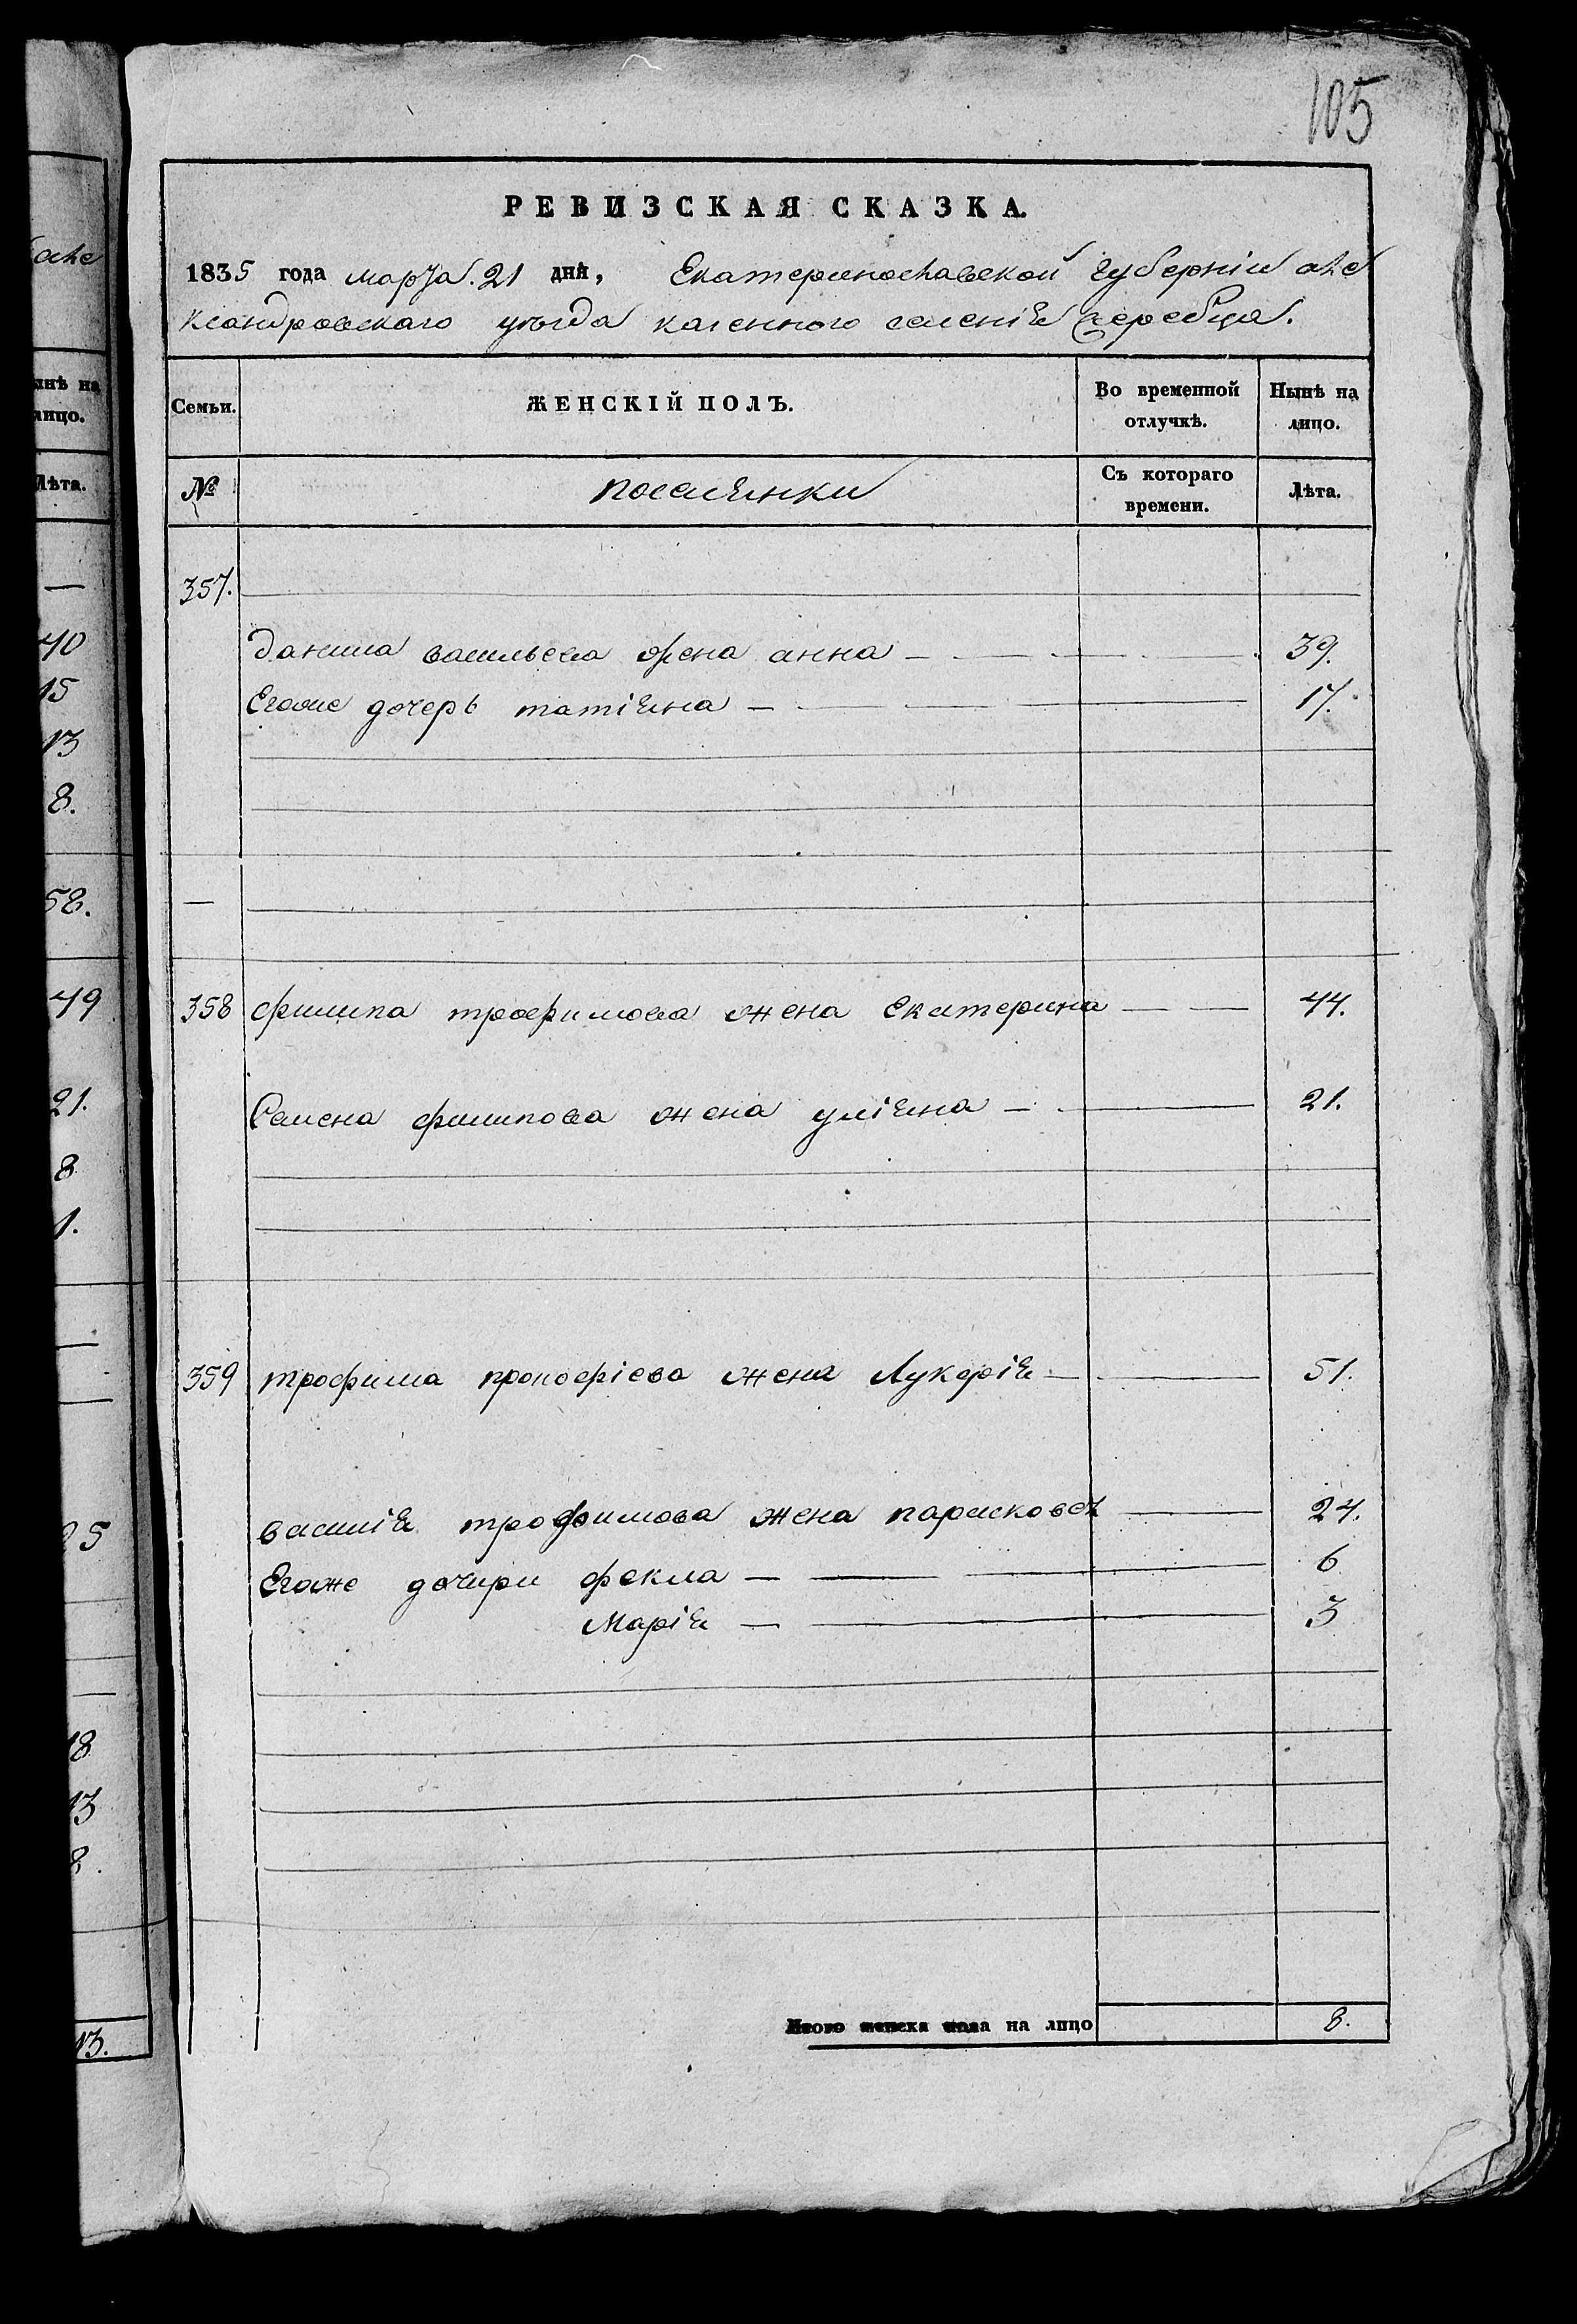 105
РЕВИЗСКАЯ СКАЗКА.
1835 года марта. 21 дня, Екатеринославской губерніи але
ксандровскаго уѣзда казенного селенія жеребца.
Семьи. ЖЕНСКІЙ ПОЛЪ. Во временной отлучкѣ. Нынѣ на лицо.
№ поселянки Съ котораго времени. Лѣта.
357.
данила васильева жена анна — 39.
Егоже дочерь татіяна — 17.
358 филипа трофимова жена Екатерина — 44.
Семена филипова жена уліяна — 21.
359 трофима прокофіева жена Лукерія — 51.
василія трофимова жена парасковея — 24.
Егоже дочири фекла — 6
Марія — 3
Итого женска пола на лицо 8.
але
ынѣ на
лицо.
Лѣта.
—
40
15
13
8.
58.
49
21.
8
1.
—
—
25
—
18
13
2.
13.